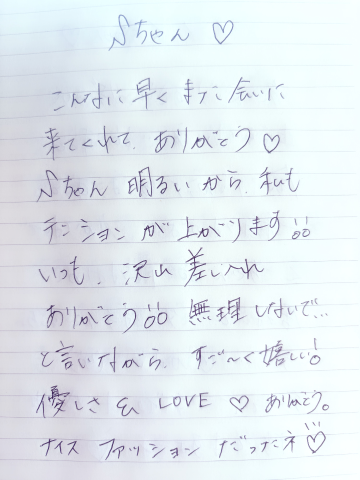 Sちゃん ♡
こんなに早くまた会いに
来てくれて、ありがとう♡
Sちゃん 明るいから、私も
テンションが上がります!!
いつも、沢山差し入れ
ありがとう!! 無理しないで…
と言いながら、すご〜く嬉しい!
優しさ & LOVE ♡ ありがとう。
ナイス ファッション だったネ♡